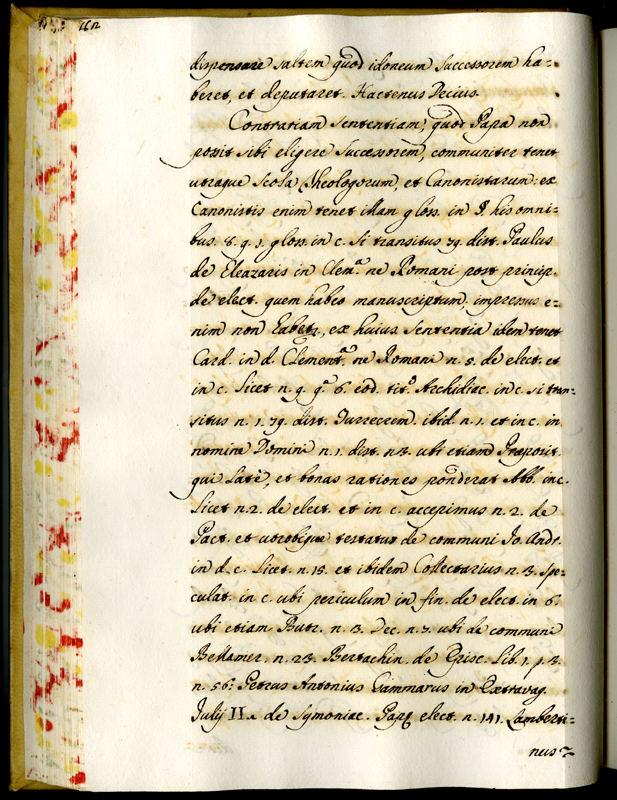 dispensare saltem quod idoneum successorem ha=
beret, et deputaret. Hactenus Decius.
Contrariam sententiam, quod Papa non
possit sibi eligere successorem, communiter tenet
utraque scola Theologorum, et Canonistarum: ex
Canonistis enim tenet illam gloss. in §. his omni=
bus. 8. q. 1. gloss. in c. si transitus 79. dist. Paulus
de Eleazaris in Clem.ª ne Romani post princip.
de elect. quem habeo manuscriptum. impressus e=
nim non habetr, ex huius sententia idem tenet
Card. in d. Clement.ª ne Romani n. 5. de elect. et
in c. licet n. 9. q.ª 6. eod. tit.º Archidiac. in c. si tran=
situs n. 1. 79. dist. Turrecrem. ibid. n. 1. et in c. in
nomine Domini n. 1. dist. n 3. ubi etiam Præposit.
qui latè, et bonas rationes ponderat Abb. in c.
licet n. 2. de elect. et in c. accepimus n. 2. de
Pact. et utrobique testatur de communi Jo. Andr.
in d. c. licet. n. 15. et ibidem Collectarius n. 3. spe=
culat. in c. ubi periculum in fin. de elect. in 6.
ubi etiam Butr. n. 13. Dec. n. 7. ubi de communi
Bellamer. n. 23. Bertachin. de Episc. lib. 1. p. 3.
n. 56. Petrus Antonius Gammarus in Extravag.
Julij II. de symoniac. Papę elect. n. 141. Lamberti=
nus